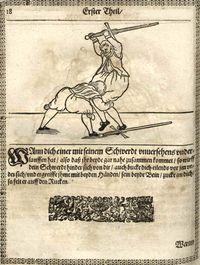 18 Erster Theil/
WAnn dich einer mit seinem Schwerdt vnversehens vnder-
lauffen hat / also daß ihr beyde gar nahe zusammen kommet / so wirff
dein Schwerdt hinder sich von dir / auch bucke dich eilends vor jm ni-
der / vnd ergreiffe jhme mit beyden Händen / sein beyde Bein / zucke an dich /
so felt er auff den Rucken.